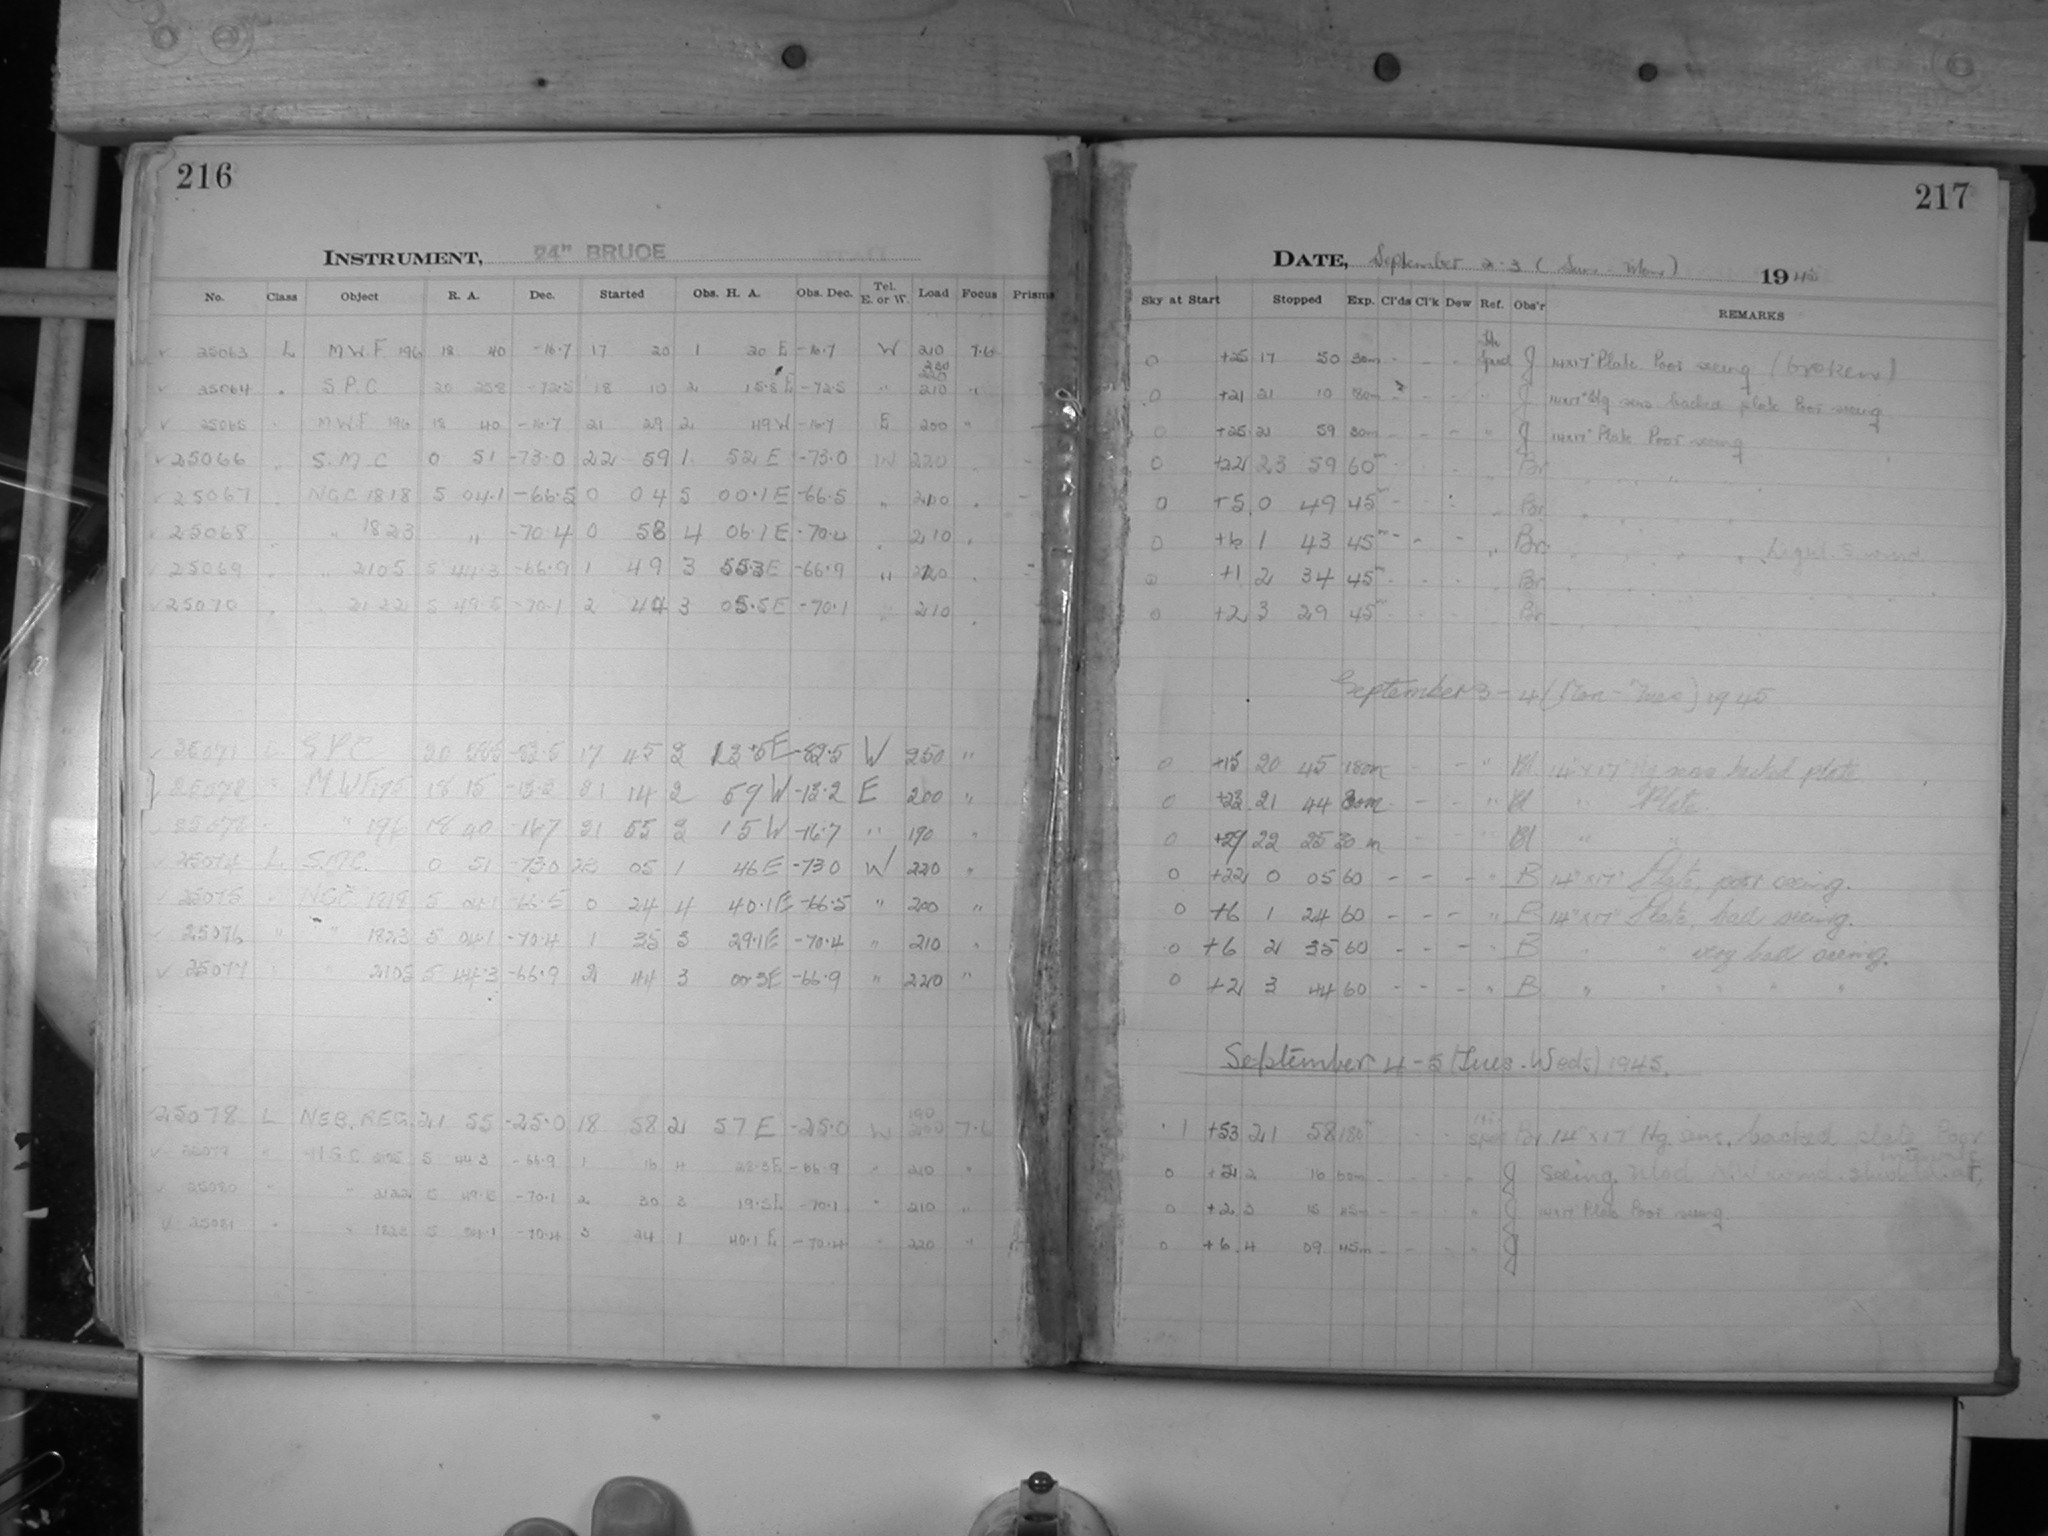 216
INSTRUMENT, 24" BRUCE
No. Class Object R. A. Dec. Started Obs. H. A. Obs. Dec. Tel. E. or W. Load Focus Prisms
25063 L M.W.F 196 18 40 -16.7 17 20 1 20 E -16.7 W 210 7.6
25064 " S.P.C 20 -72.5 18 10 2 -72.5 " 210 "
25065 " M.W.F 196 18 40 -16.7 21 29 2 49 W -16.7 E 200 "
25066 " S.M.C 0 51 -73.0 22 59 1 52 E -73.0 W 220
25067 " NGC 1818 5 04.1 -66.5 0 04 5 00.1 E -66.5 " 210 "
25068 " 1823 " -70.4 0 58 4 06.1 E -70.4 " 210 "
25069 " " 2105 5 44.3 -66.9 1 49 3 55.3 E -66.9 "
25070 " " 2122 5 49.5 -70.1 2 44 3 05.5 E -70.1 " 210 "
25071 L S.P.C 20 -82.5 17 45 3 13.5 E -82.5 W 250 "
25072 " M.W.F 175 18 15 -13.2 21 14 2 59 W -13.2 E 200 "
25073 " " 196 18 40 -16.7 21 55 2 15 W -16.7 " 190 "
25074 L S.M.C. 0 51 -73.0 23 05 1 46 E -73.0 W 220 "
25075 " NGC 1818 5 04.1 -66.5 0 24 4 40.1 E -66.5 " 200 "
25076 " " 1823 5 04.1 -70.4 1 35 3 29.1 E -70.4 " 210 "
25077 " " 2105 5 44.3 -66.9 2 44 3 00.3 E -66.9 " 220 "
25078 L NEB. REG. 21 55 -25.0 18 58 2 57 E -25.0 W 190 200 7.6
25079 " N.G.C. 2105 5 44.3 -66.9 1 16 4 28.3 E -66.9 " 210 "
25080 " " 2122 5 49.5 -70.1 2 30 3 19.5 E -70.1 " 210 "
25081 " " 1823 5 04.1 -70.4 3 24 1 40.1 E -70.4 " 220 "
217
DATE, September 2-3 ( 1945
Sky at Start Stopped Exp. Cl'ds Cl'k Dew Ref. Obs'r REMARKS
0 +25 17 50 30m - - - J 14x17" Plate Poor seeing (broken)
0 +21 21 10 - - " J 14x17" Hg sens backed plate Poor seeing
0 +25 21 59 30m - - - " J 14x17" Plate Poor seeing
0 +22 23 59 60m - - - Br " " "
0 +5 0 49 45m - - " Br " " "
0 +6 1 43 45m - - - " Br " " " " Light S wind
0 +1 2 34 45m - - - " Br " " "
0 +2 3 29 45m - - - " Br " " "
September 3-4 (Mon - Tues) 1945
0 +15 20 45 180m - - " Bl 14"x17" Hg sens backed plate
0 +23 21 44 30m - - - " Bl " Plate
0 +29 22 25 30m - - - " Bl " "
0 +22 0 05 60 - - - " B 14"x17" Plate, poor seeing.
0 +6 1 24 60 - - - " B 14"x17" Plate, bad seeing.
0 +6 2 35 60 - - - " B " " very bad seeing.
0 +2 3 44 60 - - - " B " " " " "
September 4-5 (Tues. Weds) 1945.
1 +53 21 58 180m - - 14"x17" Hg. sens. backed plate Poor
0 2 16 60m - - - " J seeing. Mod. N.W wind.
0 +2 3 15 45m - - - " J 14x17 Plate Poor seeing
0 +6 4 09 45m - - - " J